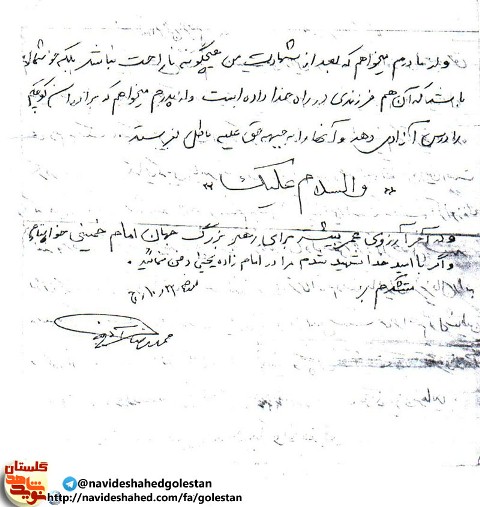 و از مادرم میخواهم که بعد از شهادت من هیچگونه ناراحت نباشد بلکه خوشحال
باشد که آن هم فرزندی در راه خدا داده است و از پدرم میخواهم که برادران کوچکم
را درس آزادی دهد و آنها را به جبهه حق علیه باطل بفرستد
" والسلام علیک "
و در آخر آرزوی عمر بیشتر برای رهبر بزرگ جهان امام خمینی خواهانم
و اگر با امید خدا شهید شدم مرا در امام زاده یحیی دفن نمائید .
متشکرم
محمدرضا
گلستان
نوید شاهد
@navideshahedgolestan
http://navideshahed.com/fa/golestan